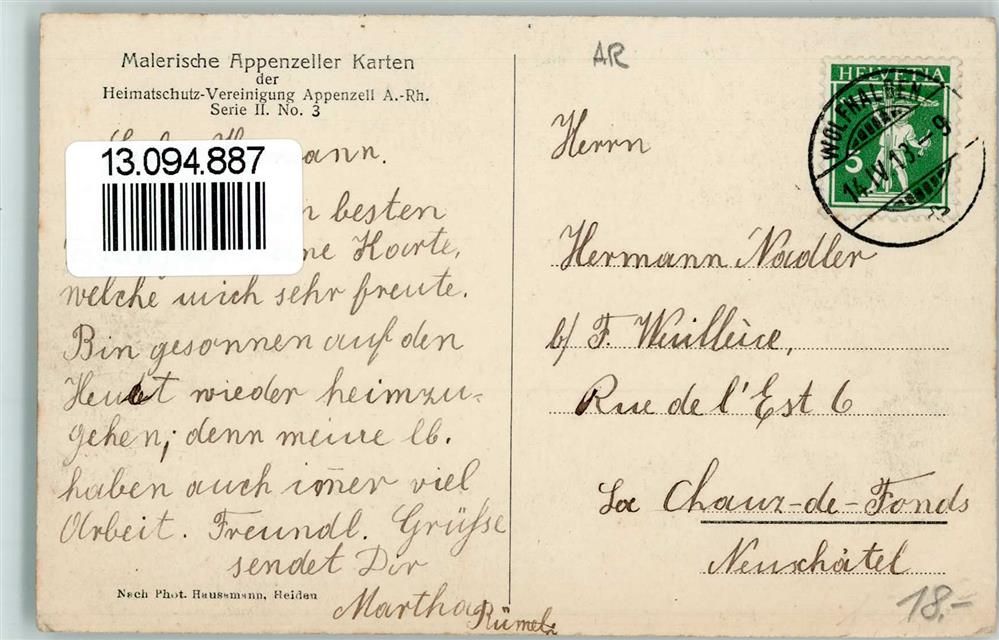 Malerische Appenzeller Karten
der
Heimatschutz-Vereinigung Appenzell A.-Rh.
Serie II. No. 3
13.094.887
besten
Karte,
welche mich sehr freute.
Bin gesonnen auf den
Heuet wieder heimzu-
gehen; denn meine lb.
haben auch im̄er viel
Arbeit. Freundl. Grüsse
sendet Dir
Martha
Nach Phot. Haussmann, Heiden
AR
HELVETIA
5
WOLFHALDEN
14.IV.13.-9
Herrn
Hermann Nadler
b/ F. Wuilleùce,
Rue de l'Est 6
La Chaux-de-Fonds
Neuchâtel
18.-